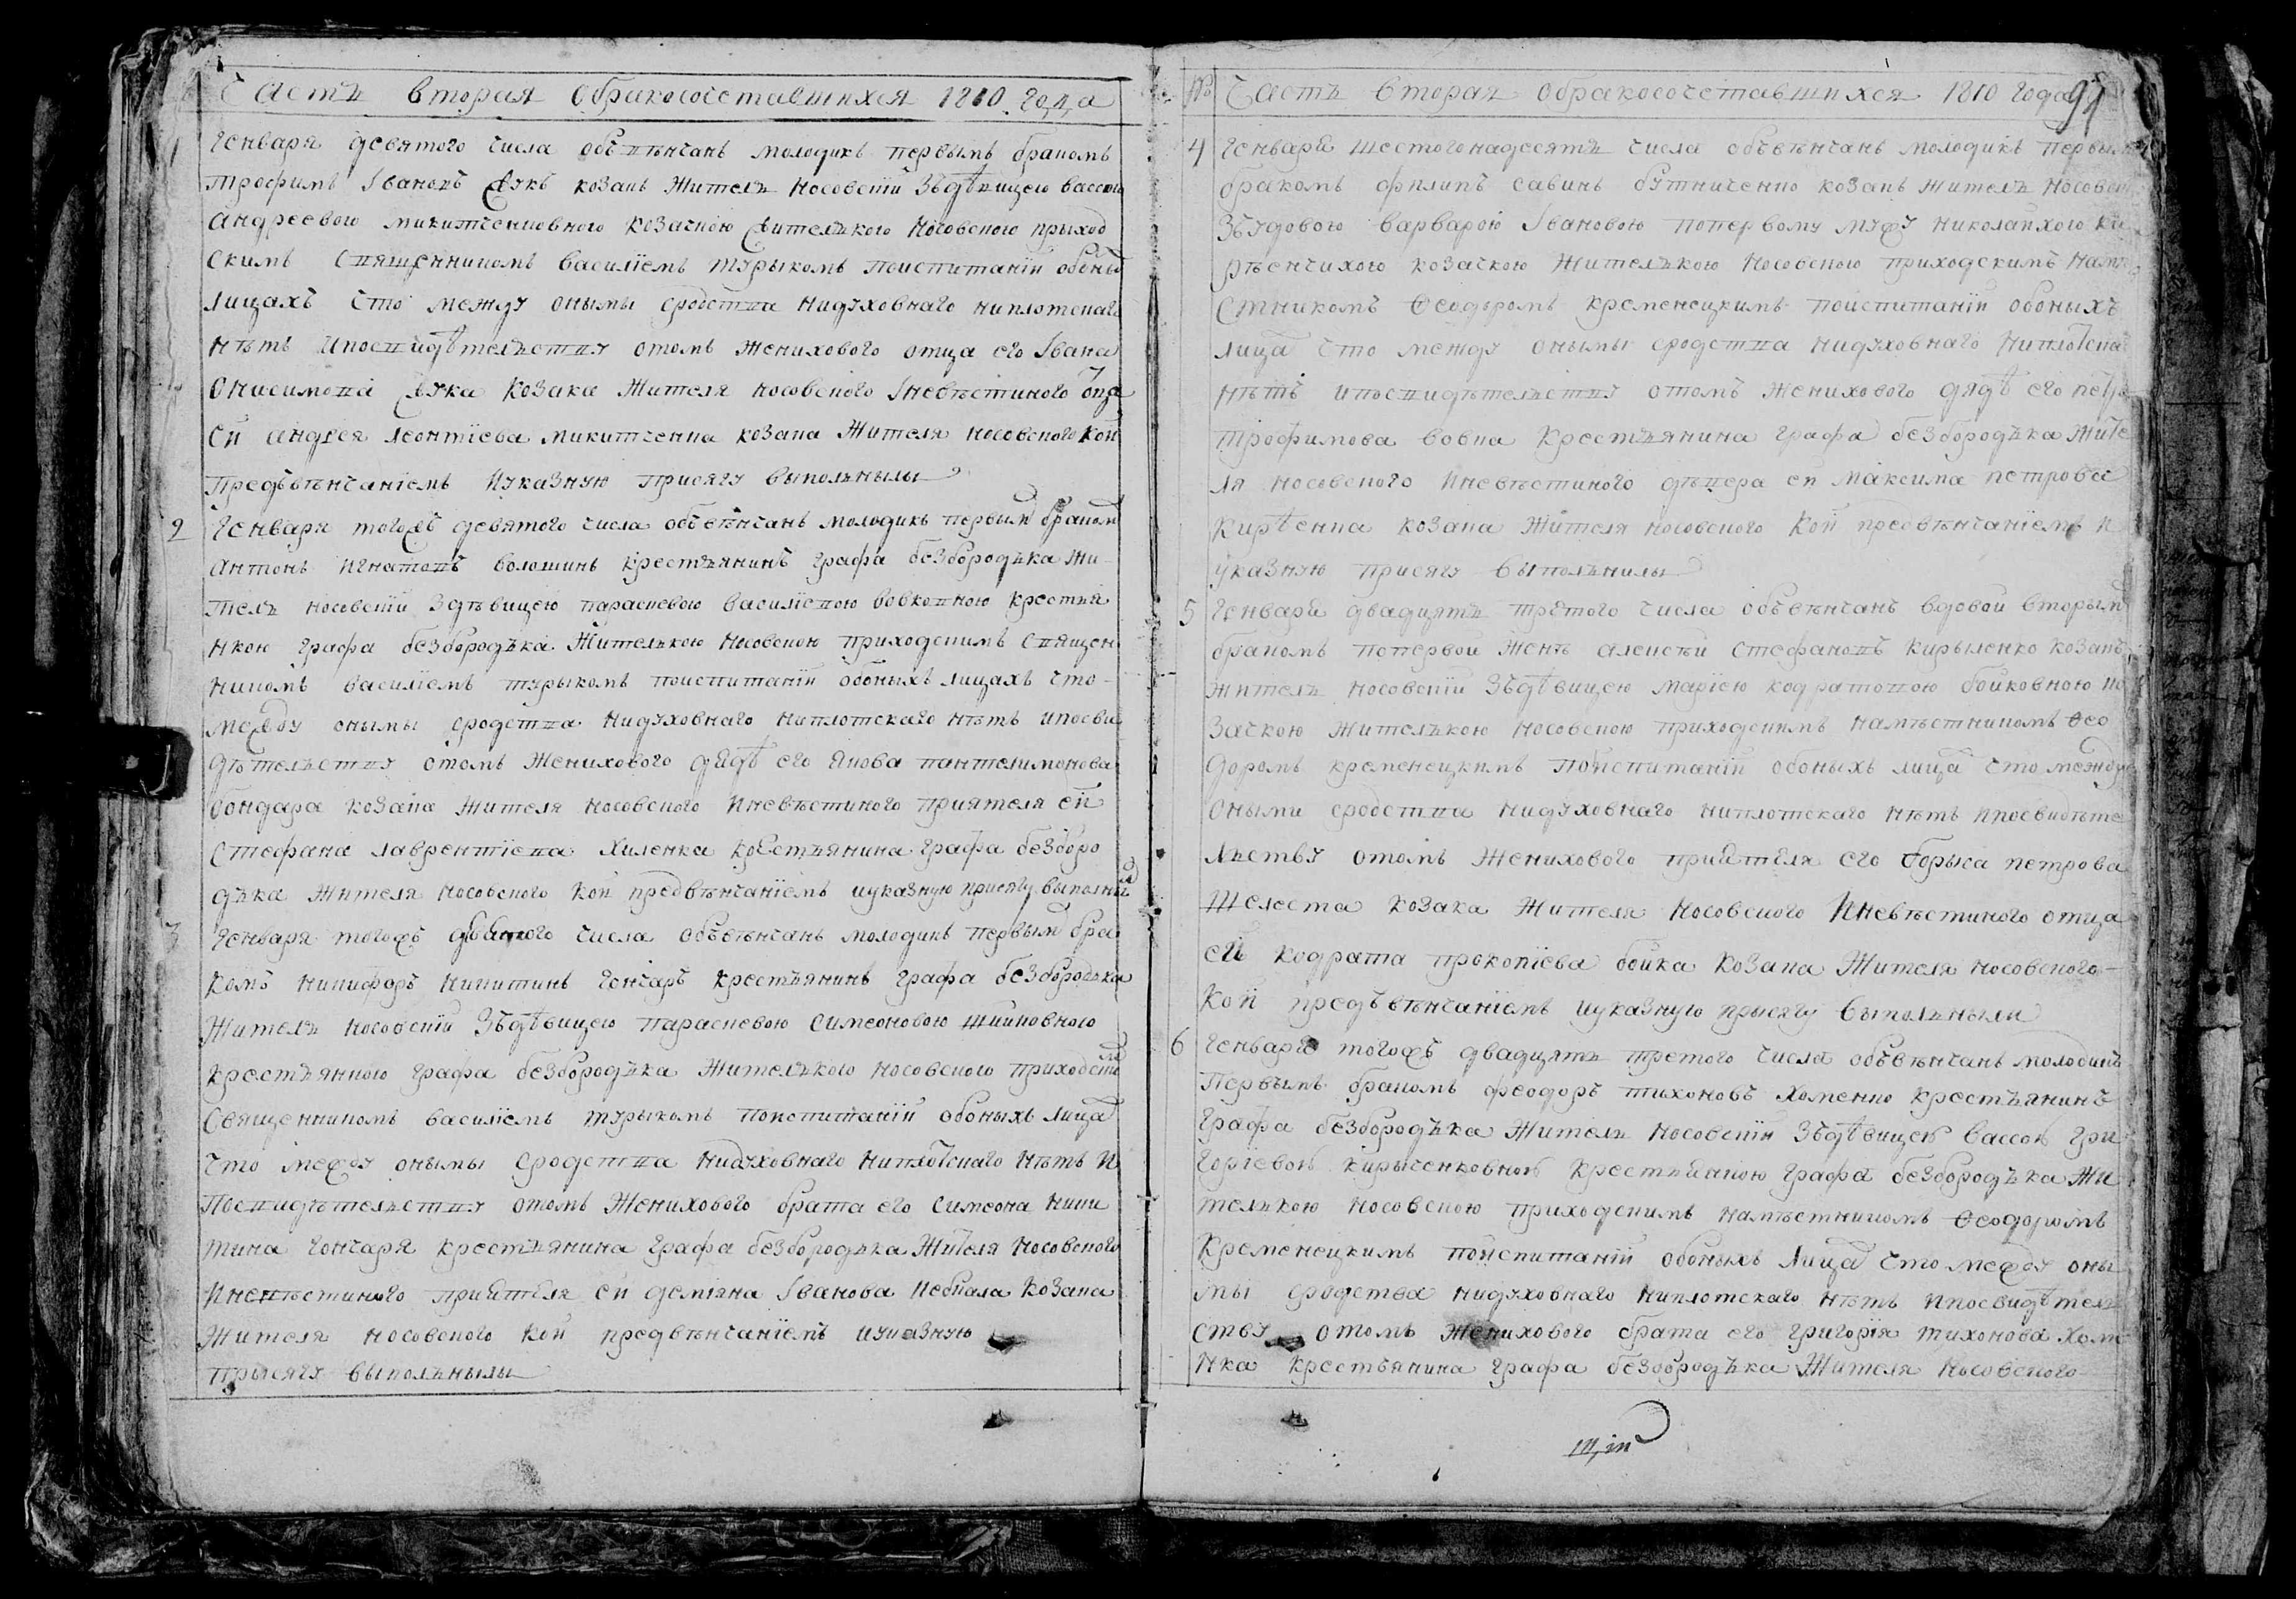 Часть вторая обракосочетавшихся 1810 года
Генваря девятого числа обвѣнчанъ молодикъ первымъ бракомъ
трофимъ Івановъ козакъ жатель носовскій Зъдѣвицею вассою
андреевою микитченковного козачкою жителькою носовскою прыход
скимъ священникомъ василіемъ турыкомъ поиспитаніи обоныхъ
лицахъ что между оными сродства нидуховнаго ниплотскаго
нѣтъ ипосвидѣтелству отомъ женихового отца его Івана
Онисимова козака жителя носовского Іневѣстиного отца
ей андрея леонтіева микитченка козака жителя носовского кой
предъвѣнчаніемъ иуказную присягу выполныли
2 Генваря тогожъ девятого числа обвѣнчанъ молодикъ первым браком
антонъ игнатовъ волошинъ крестьянинъ графа безбородька жи
тель носовскій здѣвицею параскевою василіевою вовковною крестья
нкою графа безбородька жителькою носовскою приходскимъ священ
никомъ василіемъ турыкомъ поиспитаніи обоныхъ лицахъ что
между оными сродства нидуховнаго ниплотскаго нѣтъ ипосви
дѣтельству отомъ женихового дядѣ его якова пантелимонова
бондара козака жителя носовского иневѣстиного приятеля ей
стефана лаврентіева хиленка крестьянина графа безборо
дька жителя носовского кой предвѣнчаніемъ иуказную присягу выполныл
3 Генваря тогожъ числа обьвѣнчанъ молодикъ первым бра
комъ никифоръ никитинъ гончаръ крестьянинъ графа безбородька
жатель носовскій Зъдѣвицею параскевою симеоновою
крестьянкою графа безбородька жителькою носовскою приходским
священникомъ василіемъ турыкомъ поиспитаніи обоныхъ лицах
что между оными сродства нидуховнаго ниплотскаго нѣтъ и
посвидѣтельству отомъ женихового брата его симеона ники
тина гончаря крестьянина графа безбородька жителя носовского
иневѣстиного приятеля ей деміяна Іванова козака
жителя носовского кой предвѣнчаніемъ иуказную
прысягу выполныли
№ Часть вторая обракосочетавшихся 1810 года
4 Генваря шестогонадесять числа обьвѣнчанъ молодикъ первым
бракомъ филипъ савинъ бутниченко козакъ житель носовскій
Зъудовою варварою Івановою попервому мужу николаихою ки
рѣенчихою козачкою жителькою носовскою приходскимъ намѣ
стникомъ Ѳеодоромъ кременецкимъ поиспитаніи обоныхъ
лицах что между оными сродства нидуховнаго ниплотскаг
нѣтъ ипосвидѣтельству отомъ женихового дядѣ его петра
трофимова вовка крестьянина графа безбородька жите
ля носовского иневѣстиного ей максима петрова
кирѣенка козака жителя носовского кой предвѣнчаніемъ и
указную присягу выпольнилы
5 Генваря двадцять третого числа обьвѣнчанъ вдовой вторым
бракомъ попервой женѣ алексѣй стефановъ кирыленко козакъ
житель носовскій Зъдѣвицею маріею кодратовою бойковною ко
зачкою жителькою носовскою приходскимъ намѣстникомъ Ѳео
доромъ кременецкимъ поиспитаніи обоныхъ лицах что между
оными сродства нидуховнаго ниплотскаго нѣтъ ипосвидѣте
льству отомъ женихового приятеля его борыса петрова
шелеста козака жителя носовского иневѣстиного отца
ей кодрата прокопіева бойка козака жителя носовского
кой предъвѣнчаніемъ иуказную прысягу выпольныли
6 Генваря тогожъ двадцять третого числа обьвѣнчанъ молодикъ
первымъ бракомъ феодоръ тихоновъ хоменко крестьянинъ
графа безбородька житель носовскій Зъдѣвицею вассою гри
горіевою кирыченковною крестьянкою графа безбородька жи
телькою носовскою приходскимъ намѣстникомъ Ѳеодоромъ
кременецкимъ поиспитаніи обоныхъ лицах что между оны
мы сродства нидуховнаго ниплотскаго нѣтъ ипосвидѣтель
ству отомъ женихового брата его григорія тихонова хоме
нка крестьянина графа безбородька жителя носовского